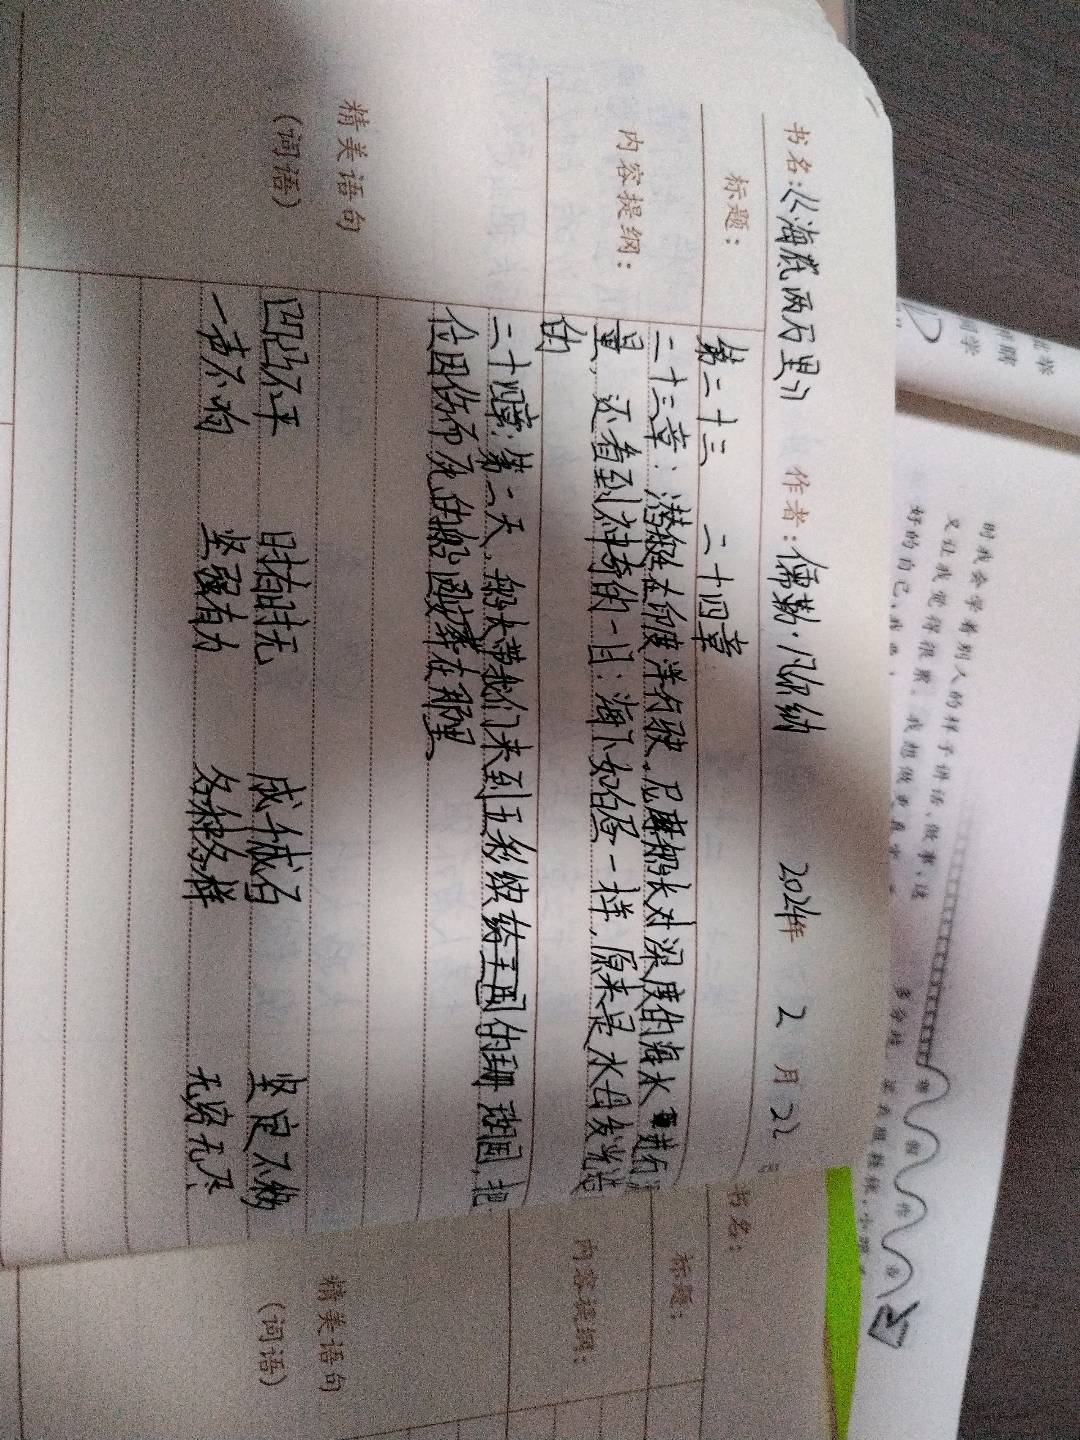 书名:《海底两万里》 作者:儒勒·凡尔纳 2024年 2 月 22 号
标题: 第二十三 二十四章
内容提纲: 二十三章:潜艇在印度洋行驶。尼摩船长对深度的海水进行测
量,还看到神奇的一目:海下如白昼一样,原来是水母发光造
的
二十四章:第二天,船长带我们来到五彩缤纷王国的珊瑚国,把
位因伤而死的船员安葬在那里
精美语句
(词语)
凹凸不平 时有时无 成千城百 坚定不移
一声不响 坚强有力 各种各样 无穷无尽
书名:
标题:
内容提纲:
精美语句
(词语)
时我会学着别人的样子讲话、做事,这
又让我觉得很累。我想做更真实
好的自己、